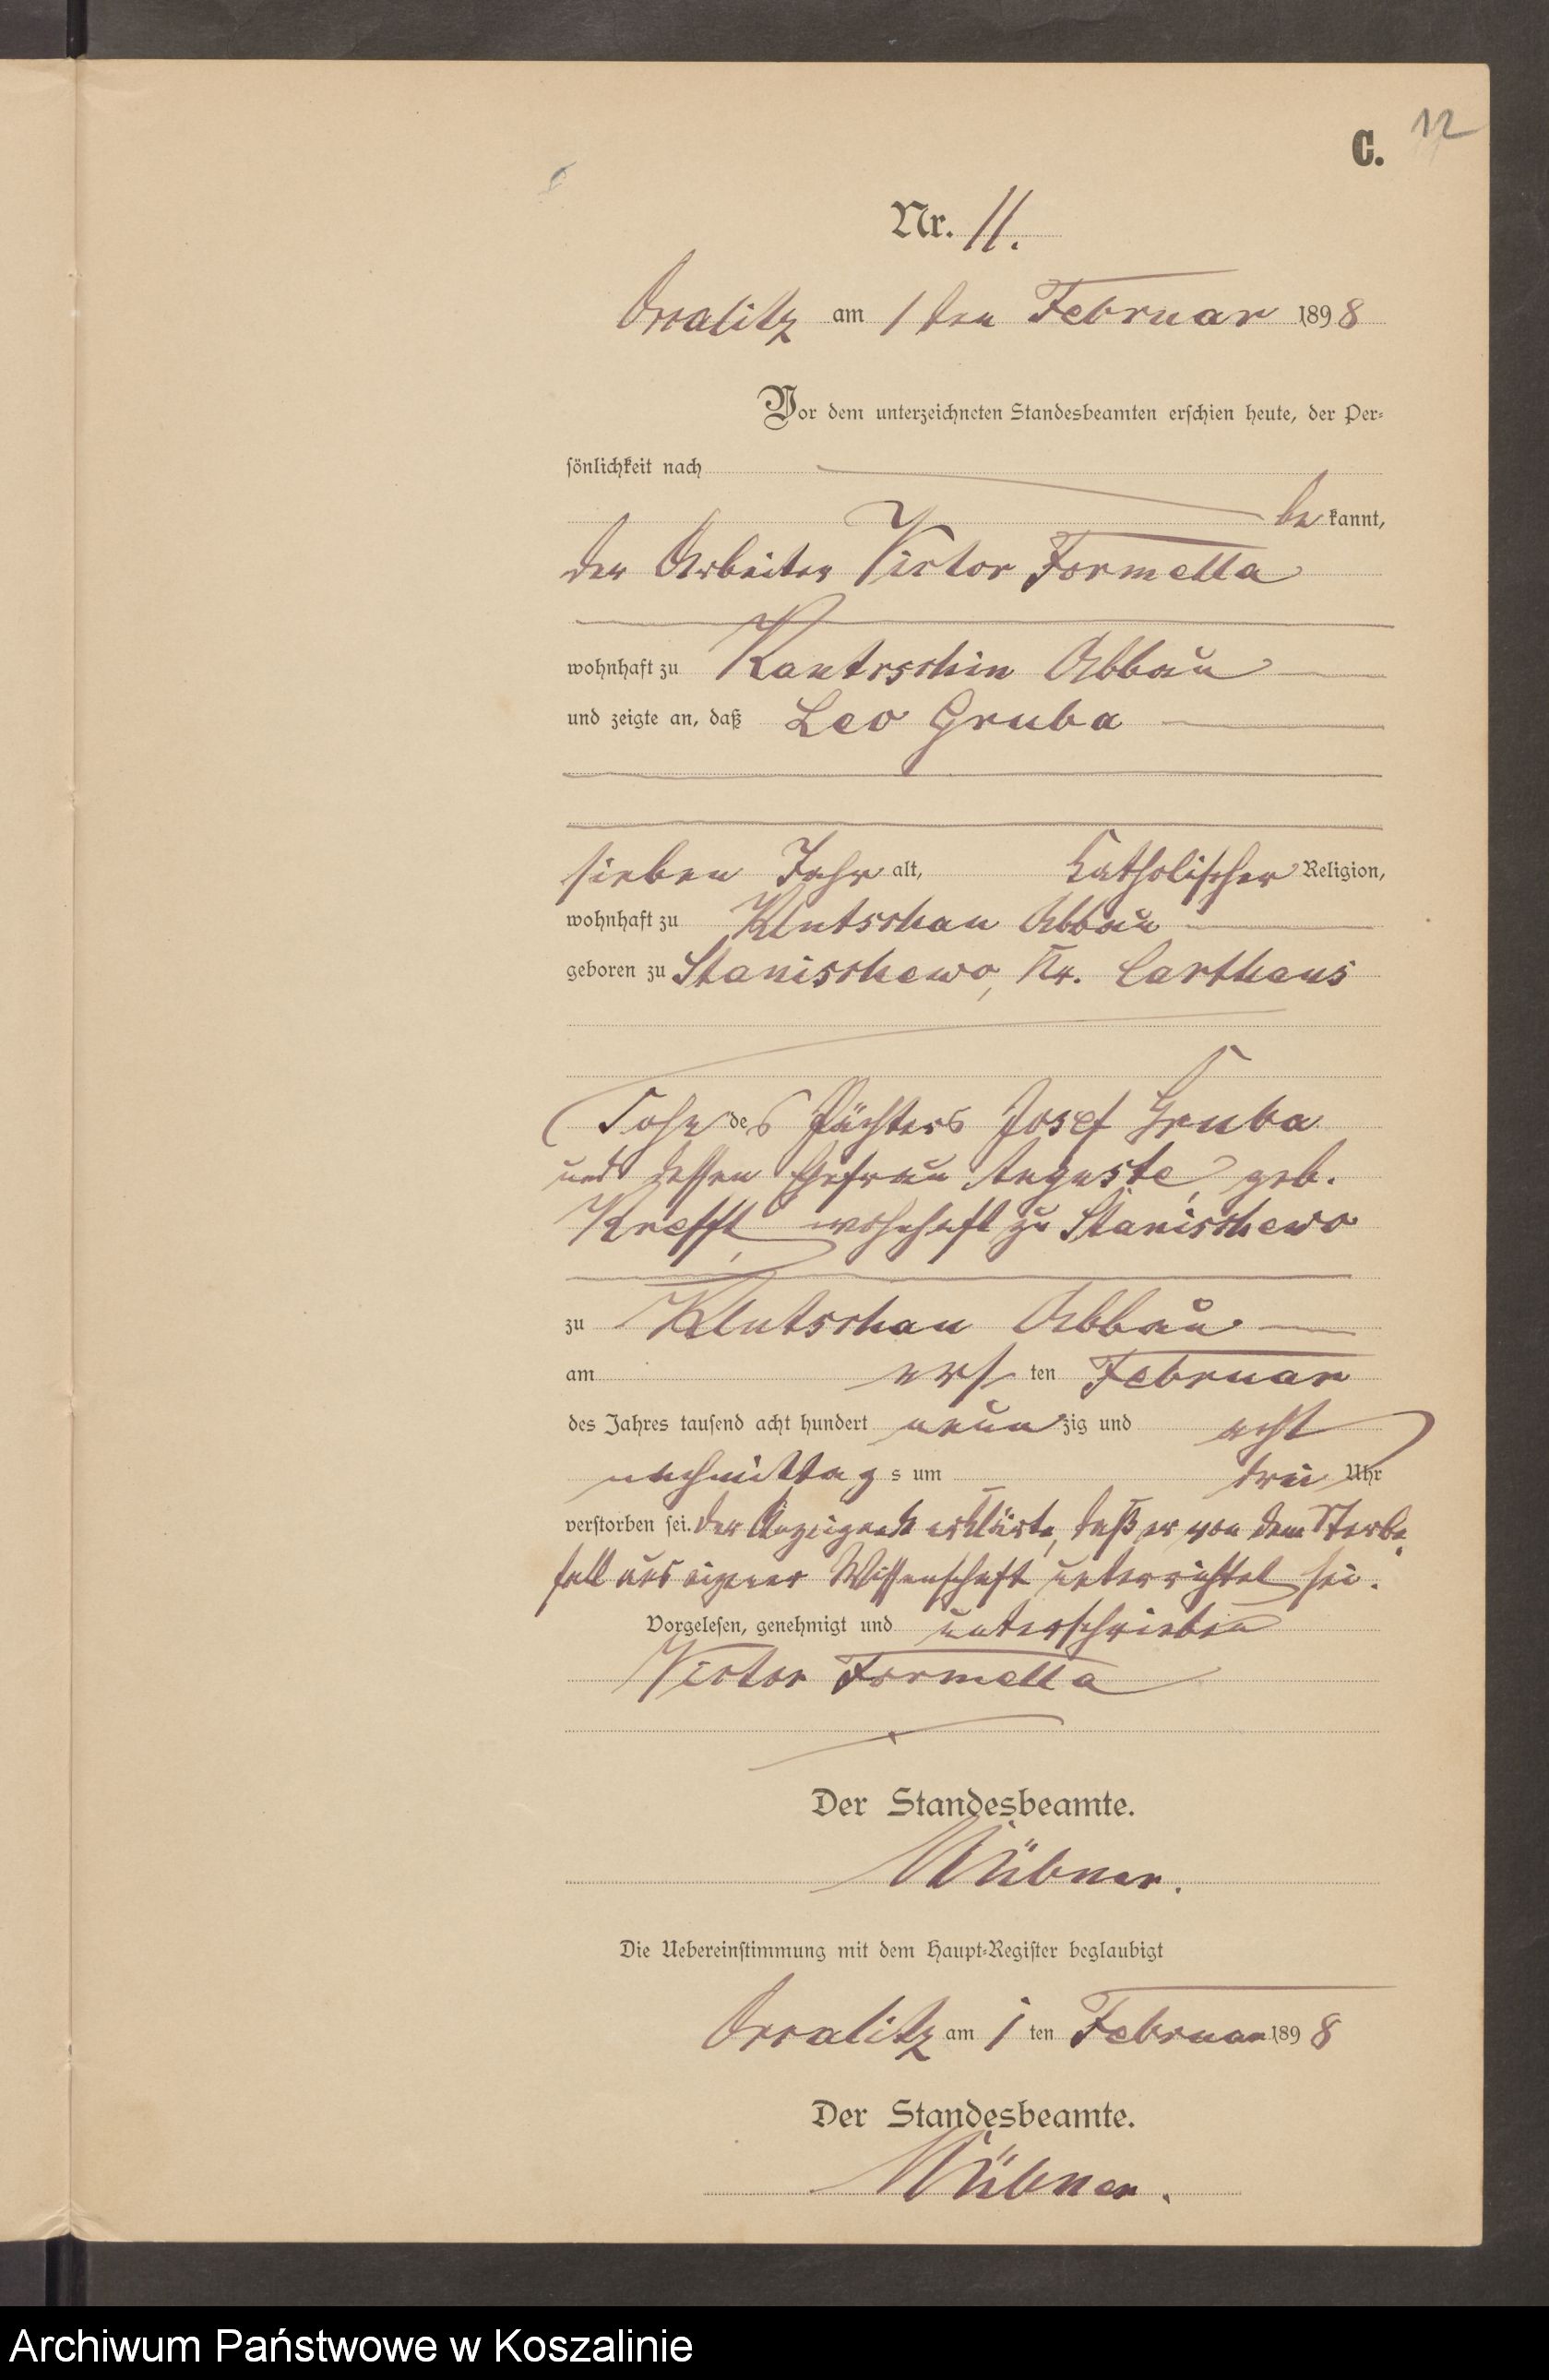 C. 12
Nr. 11.
Occalitz am 1ten Februar 1898
Vor dem unterzeichneten Standesbeamten erschien heute, der Per-
sönlichkeit nach
be kannt,
der Arbeiter Victor Formella
wohnhaft zu Kantrschin Abbau
und zeigte an, daß Leo Gruba
sieben Jahr alt, katholischer Religion,
wohnhaft zu Klutschau Abbau
geboren zu Stanischewo, Kr. Carthaus
Sohn des Pächters Josef Gruba
und dessen Ehefrau Auguste, geb.
Krefft, wohnhaft zu Stanischewo
zu Klutschau Abbau
am ersten Februar
des Jahres tausend acht hundert neunzig und acht
nachmittags um drei Uhr
verstorben sei. Der Anzeigende erklärte, daß er von dem Sterbe-
fall aus eigener Wissenschaft unterrichtet sei.
Vorgelesen, genehmigt und unterschrieben
Victor Formella
Der Standesbeamte.
Nübner.
Die Uebereinstimmung mit dem Haupt-Register beglaubigt
Occalitz am 1 ten Februar 1898
Der Standesbeamte.
Nübner.
Archiwum Państwowe w Koszalinie